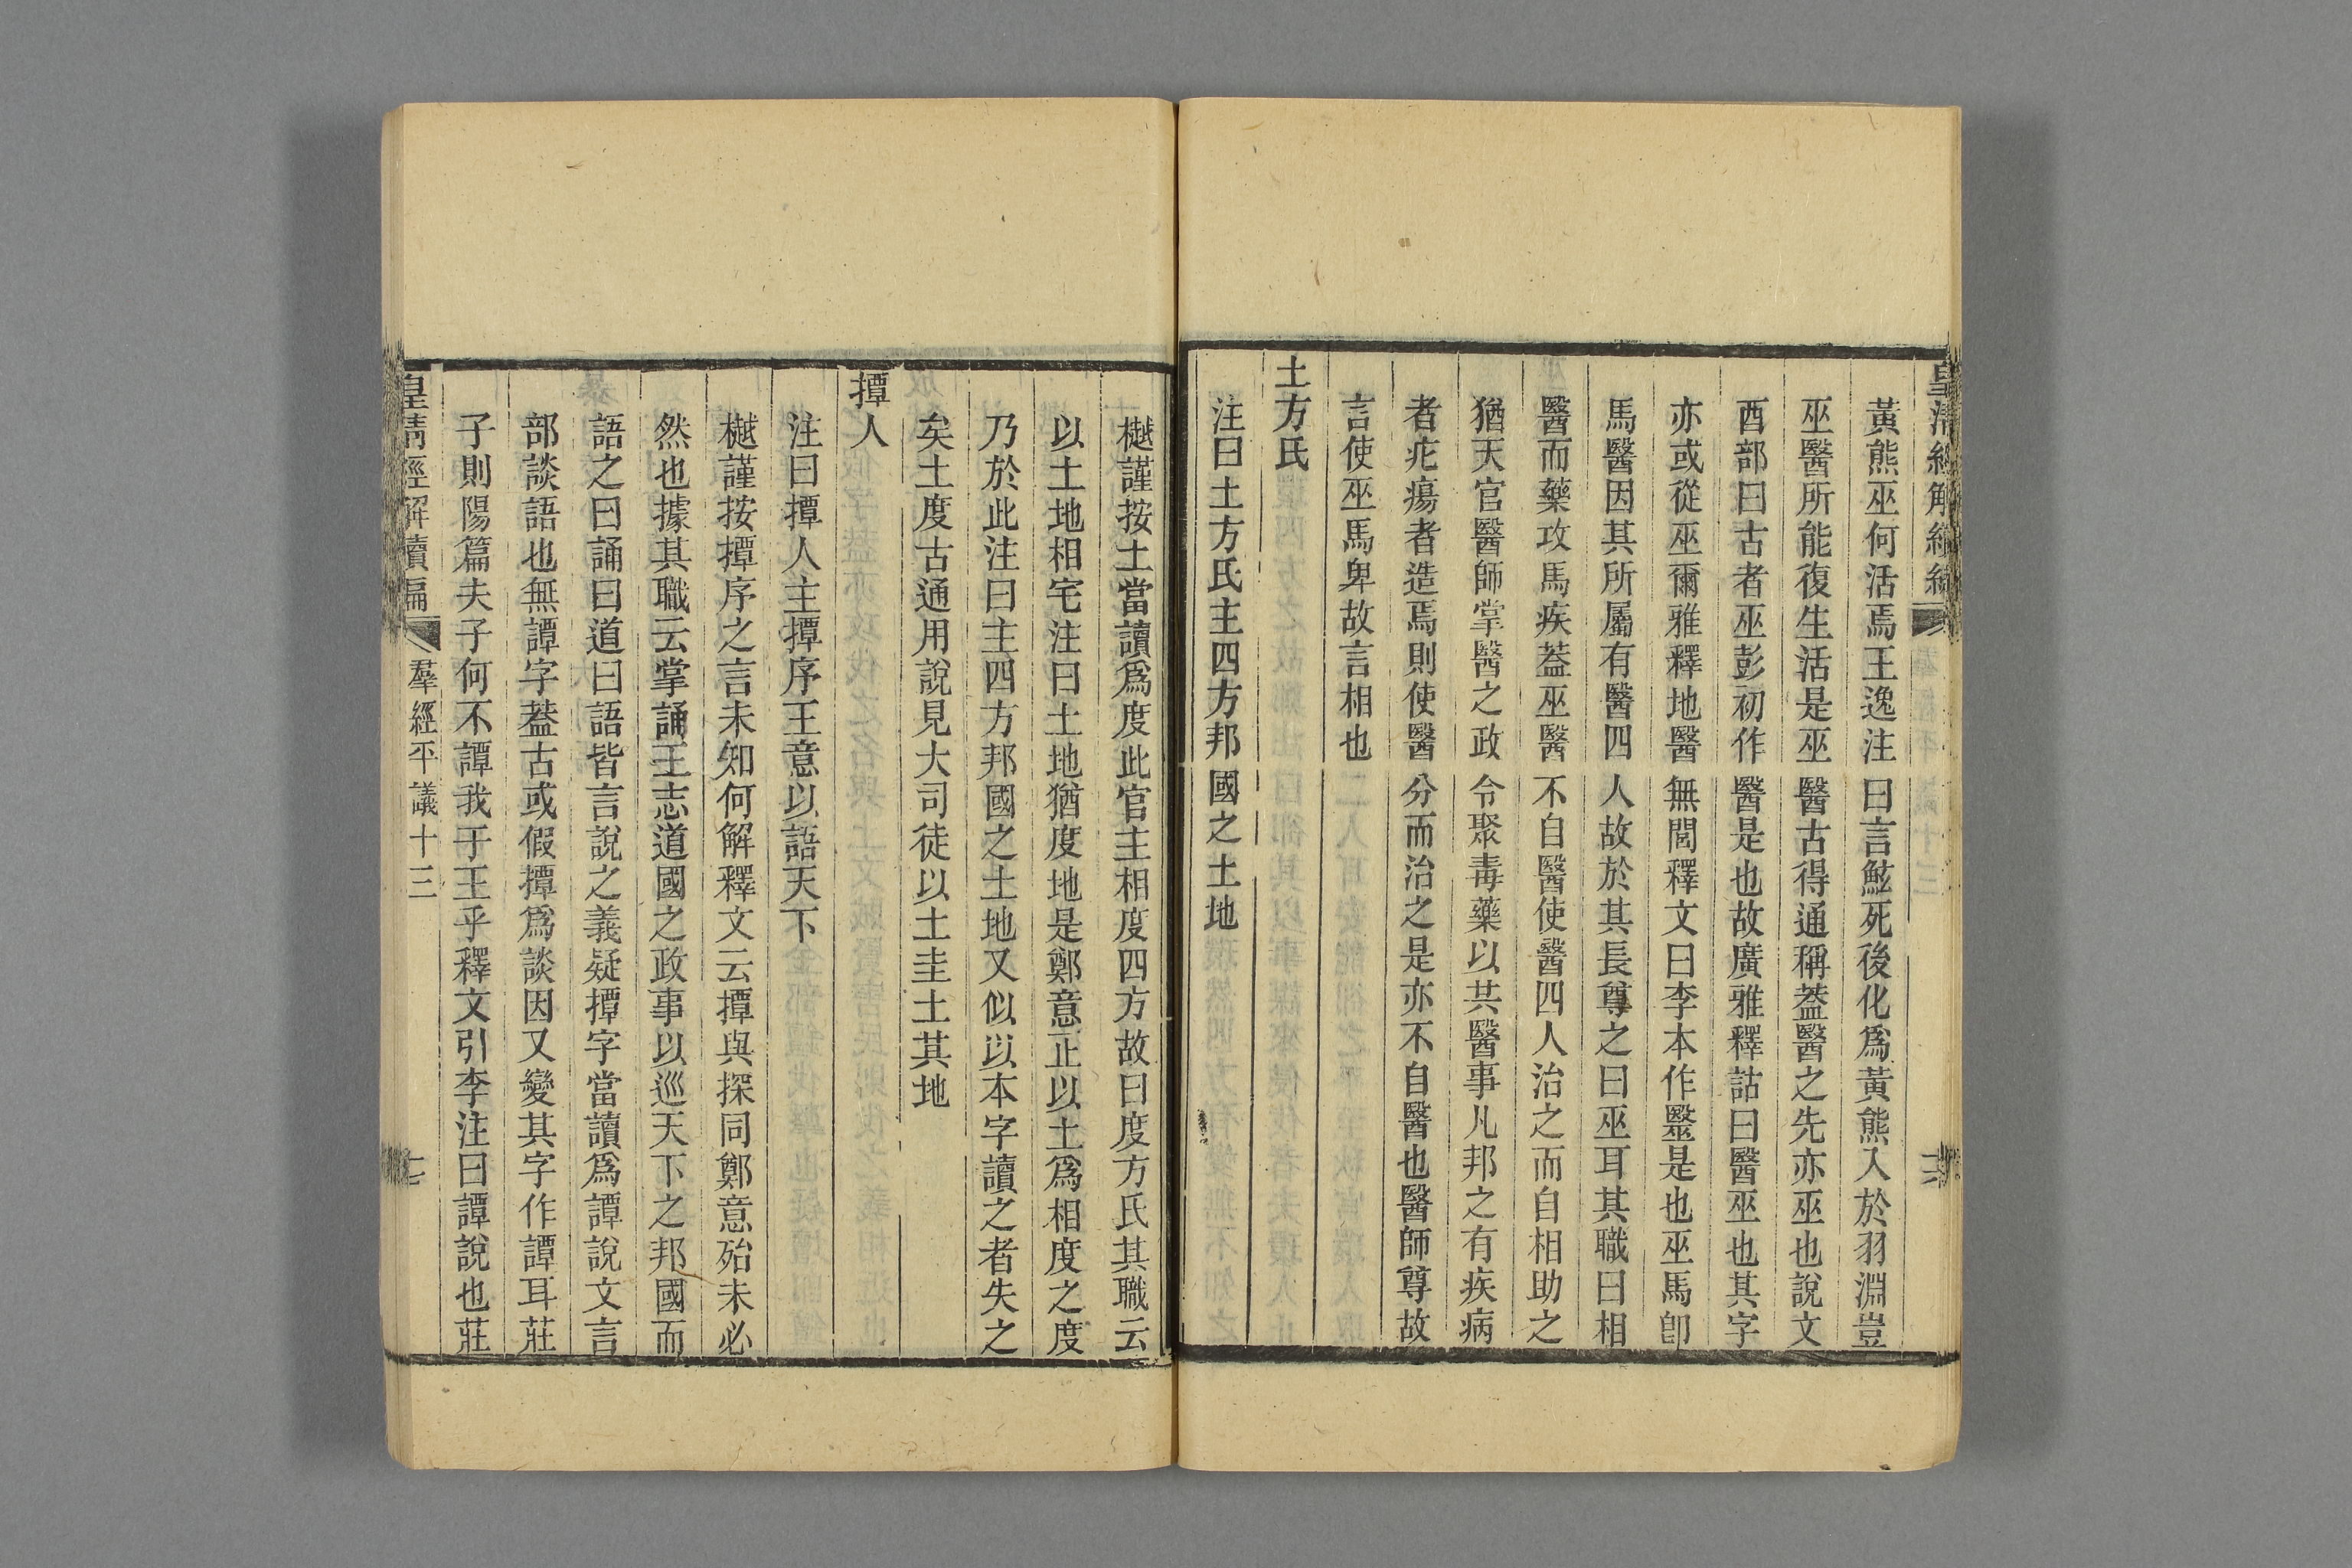 黃熊巫何活焉王逸注曰言鮌死後化爲黃熊入於羽淵豈
巫醫所能復生活是巫醫古得通稱葢醫之先亦巫也說文
酉部曰古者巫彭初作醫是也故廣雅釋詁曰醫巫也其字
亦或從巫爾雅釋地醫無閭釋文曰李本作毉是也巫馬卽
馬醫因其所屬有醫四人故於其長尊之曰巫耳其職曰相
醫而藥攻馬疾葢巫醫不自醫使醫四人治之而自相助之
猶天官醫師掌醫之政令聚毒藥以共醫事凡邦之有疾病
者疕瘍者造焉則使醫分而治之是亦不自醫也醫師尊故
言使巫馬卑故言相也
土方氏
注曰土方氏主四方邦國之土地
樾謹按土當讀爲度此官主相度四方故曰度方氏其職云
以土地相宅注曰土地猶度地是鄭意止以土爲相度之度
乃於此注曰主四方邦國之土地又似以本字讀之者失之
矣土度古通用說見大司徒以土圭土其地
撢人
注曰撢人主撢序王意以語天下
樾謹按撢序之言未知何解釋文云撢與探同鄭意殆未必
然也據其職云掌誦王志道國之政事以巡天下之邦國而
語之曰誦曰道曰語皆言說之義疑撢字當讀爲譚說文言
部談語也無譚字葢古或假撢爲談因又變其字作譚耳莊
子則陽篇夫子何不譚我于王乎釋文引李注曰譚說也莊
皇清經解續編
羣經平議十三